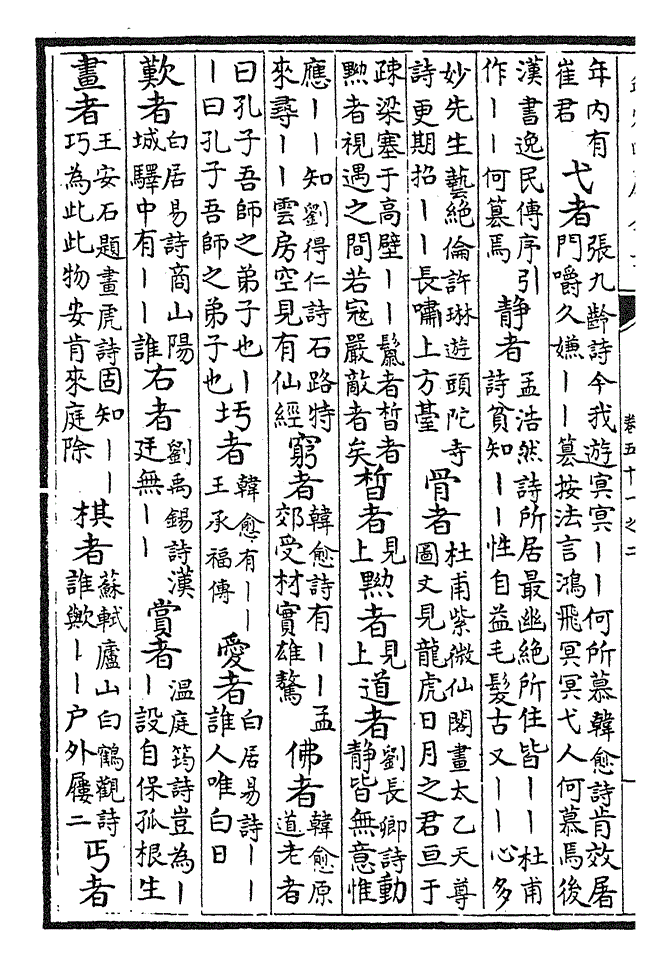 卷五十一之二
年内有崔君 弋者 張九齡詩今我遊冥冥丨丨何所慕韓愈詩肯效屠門嚼久嫌丨丨篡按法言鴻飛冥冥弋人何慕焉後
漢書逸民傳序引作丨丨何篡焉 静者 孟浩然詩所居最幽絶所住皆丨丨杜甫詩貧知丨丨性自益毛髮古又丨丨心多
妙先生藝絶倫許琳遊頭陀寺詩更期招丨丨長嘯上方薹 骨者 杜甫紫微仙閣畫太乙天尊圖文見龍虎日月之君亘于
疎梁塞于高壁丨丨鬣者晳者黝者視遇之間若寇嚴敵者矣 晳者 見上 黝者 見上 道者 劉長卿詩動静皆無意惟
應丨丨知劉得仁詩石路特來尋丨丨雲房空見有仙經 窮者 韓愈詩有丨丨孟郊受材實雄驁 佛者 韓愈原道老者
曰孔子吾師之弟子也丨丨曰孔子吾師之弟子也 圬者 韓愈有丨丨王承福傳 愛者 白居易詩丨丨誰人唯白日
歎者 白居易詩商山陽城驛中有丨丨誰 右者 劉禹錫詩漢廷無丨丨 賞者 温庭筠詩豈為丨丨設自保孤根生
畫者 王安石題畫虎詩固知丨丨巧為此此物安肯來庭除 棋者 蘇軾廬山白鶴觀詩誰歟丨丨户外屨二 丐者